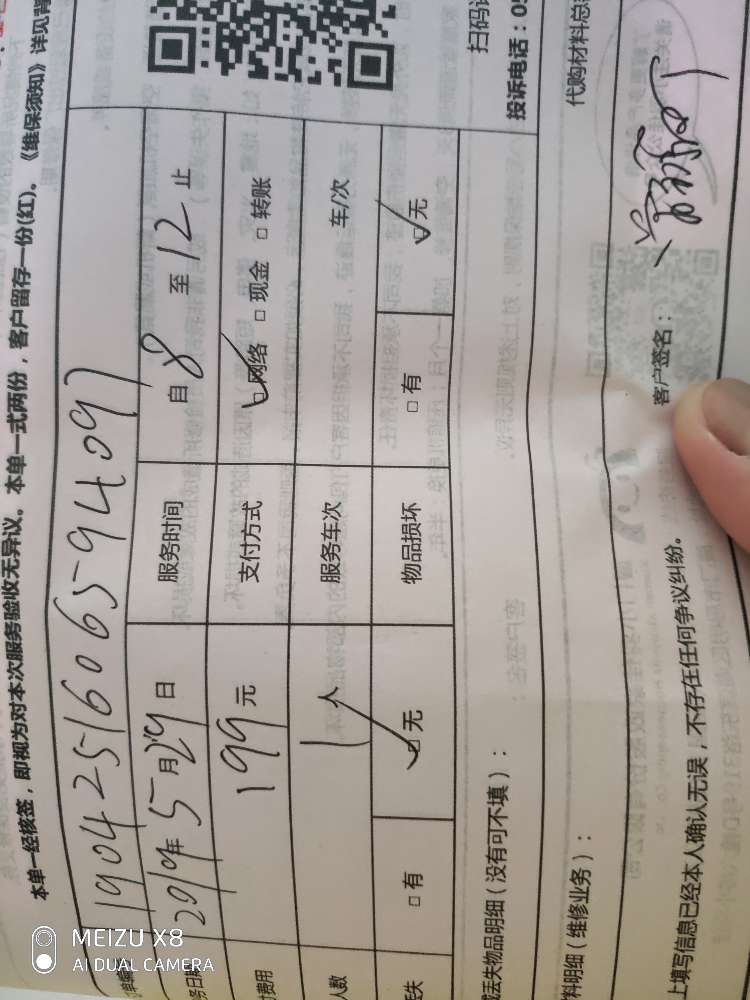 本单一经核签，即视为对本次服务验收无异议。本单一式两份，客户留存一份(红)。《维保须知》详见背
单编号 1904251606594097
务日期 2019年5月29日 服务时间 自8至12止
费用 199元 支付方式 ☑网络 □现金 □转账
人数 1人 服务车次 车/次
丢失 □有 ☑无 物品损坏 □有 ☑无
或丢失物品明细（没有可不填）：
料明细（维修业务）：
上填写信息已经本人确认无误，不存在任何争议纠纷。
客户签名：
扫码
投诉电话：05
代购材料总
MEIZU X8
AI DUAL CAMERA